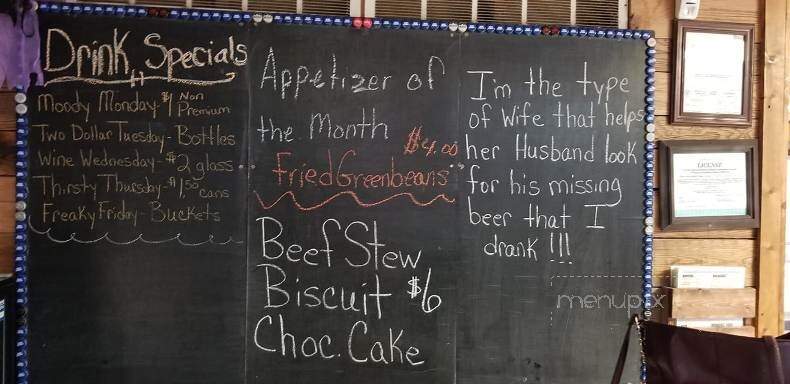 Drink Specials
Moody Monday-$1 Non Premium
Two Dollar Tuesday-Bottles
Wine Wednesday-$2 glass
Thirsty Thursday-$1.50 cans
Freaky Friday-Buckets
Appetizer of
the Month $4.00
Fried Greenbeans
Beef Stew
Biscuit $6
Choc. Cake
I'm the type
of Wife that helps
her Husband look
for his missing
beer that I
drank !!!
LICENSE
menupix